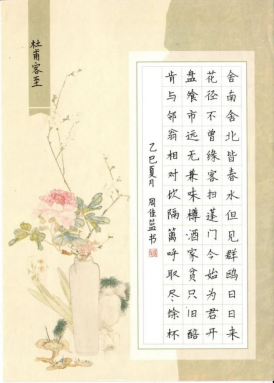 杜甫客至
舍南舍北皆春水但见群鸥日日来
花径不曾缘客扫蓬门今始为君开
盘飧市远无兼味樽酒家贫只旧醅
肯与邻翁相对饮隔篱呼取尽馀杯
乙巳夏月 周佳益书